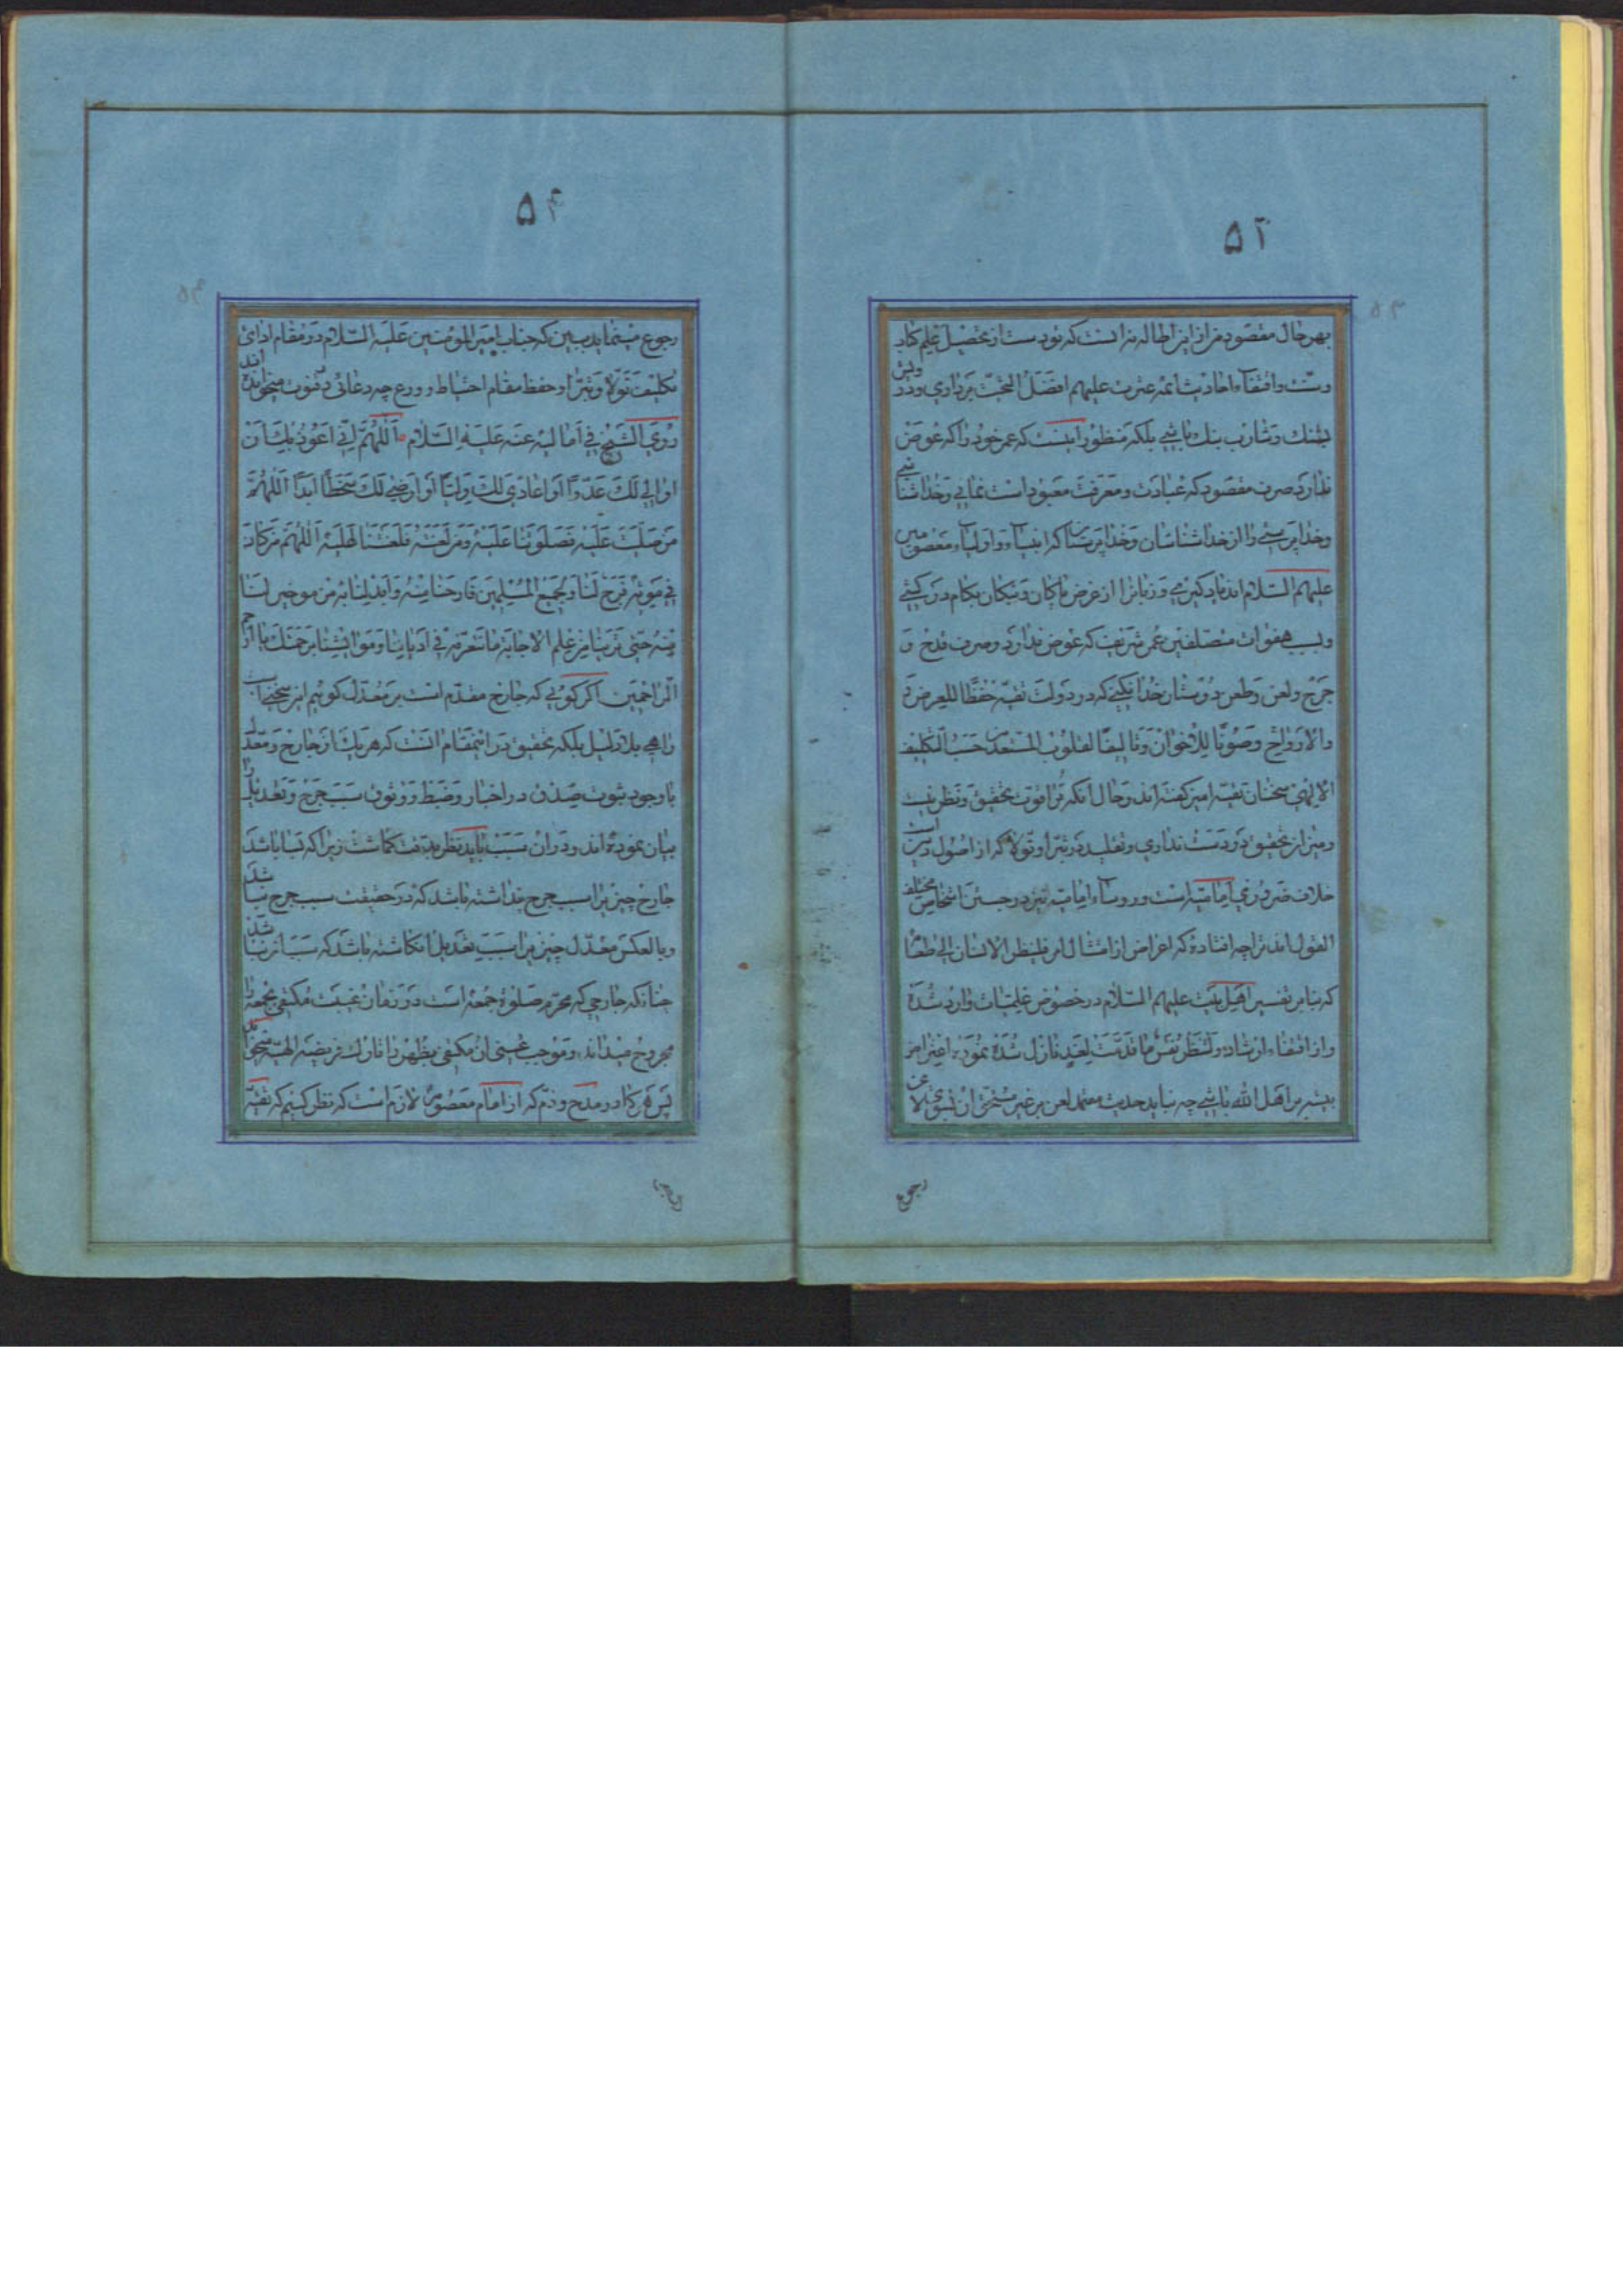 ۵۲
بهر حال مقصود من از این اطاله نه انست که تو دست از تحصیل علم کتاب
و سنت و اقتفاء احادیث ائمه عترت علیهم افضل التحیت برداری و درویش
بنک و شارب بنک باشی بلکه منظور اینست که عمر خود را که عوض
ندارد صرف مقصود که عبادت و معرفت معبود است نمائی و خداشناسی
و خداپرستی را از خداشناسان و خداپرستان که انبیاء و اولیاء معصومین
علیهم السلام اند یاد کیری و زبانرا از عرض پاکان و نیکان بکام درکشی
و بسبب هفوات متصلفین عمر شریف که عوض ندارد صرف قدح و
جرح و لعن و طعن دوستان خدا نکنی که در دولت تقیه حفظا للعرض
والارواح و صونا للاخوان و تالیفا لقلوب المستعدین حسب التکلیف
الالهی سخنان تقیه امیز کفته اند و حال انکه ترا قوت تحقیق و نظر نیست
و میزان تحقیق در دست نداری و تقلید در تبرا و تولا که از اصول دین است
خلاف ضروری امامیه است و روساء امامیه نیز در حسن اشخاص مختلف
القول اند ترا چه افتاده که اعراض از امتثال امر فلینظر الانسان الی طعامه
که بنابر تفسیر اهل بیت علیهم السلام در خصوص علمیات وارد شده
و از اقتفاء ارشاد ولتنظر نفس ما قدمت لغد نازل شده نموده اعتراض
بر اهل الله باشی چه نباید حدیث معتمد لعن بر غیر مستحق ان
رجوع
۵۴
رجوع مینماید ببین که جناب امیر المؤمنین علیه السلام در مقام ادای
تکلیف تولا و تبرا و حفظ مقام احتیاط و ورع چه دعائی در قنوت میخوانده اند
روی الشیخ فی امالیه عنه علیه السلام اللهم انی اعوذ بک ان
اوالی لک عدوا او اعادی لک ولیا او ارضی لک سخطا ابدا اللهم
من صلیت علیه فصلوتنا علیه و من لعنته فلعنتنا علیه اللهم من کان
فی موته فرح لنا و لجمیع المسلمین فارحنا منه و ابدلنا به من هو خیر لنا
منه حتی ترینا من علم الاجابة ما نتعرفه فی ادیاننا و معایشنا برحمتک یا ارحم
الراحمین اکر کوئی که جارح مقدم است بر معدل کویم این سخنیست
واهی بلا دلیل بلکه تحقیق در اینمقام انست که هر یک از جارح و معدل
با وجود ثبوت صدق در اخبار و ضبط و وثوق سبب جرح و تعدیل را
بیان نموده اند و در ان سبب باید نظر بدقت کماشت زیرا که بسا باشد
جارح چیزیرا سبب جرح پنداشته باشد که در حقیقت سبب جرح نباشد
و بالعکس معدل چیزیرا سبب تعدیل انکاشته باشد که سبب ان نباشد
چنانکه جارحی که محرم صلوة جمعه است در زمان غیبت مکتفی بجمعه را
مجروح میداند و موجب عینی ان مکتفی بظهر را تارک فریضه الهیه میخواند
پس هر کاه در مدح و ذم که از امام معصوم لازم است که نظر کنیم که تقیه